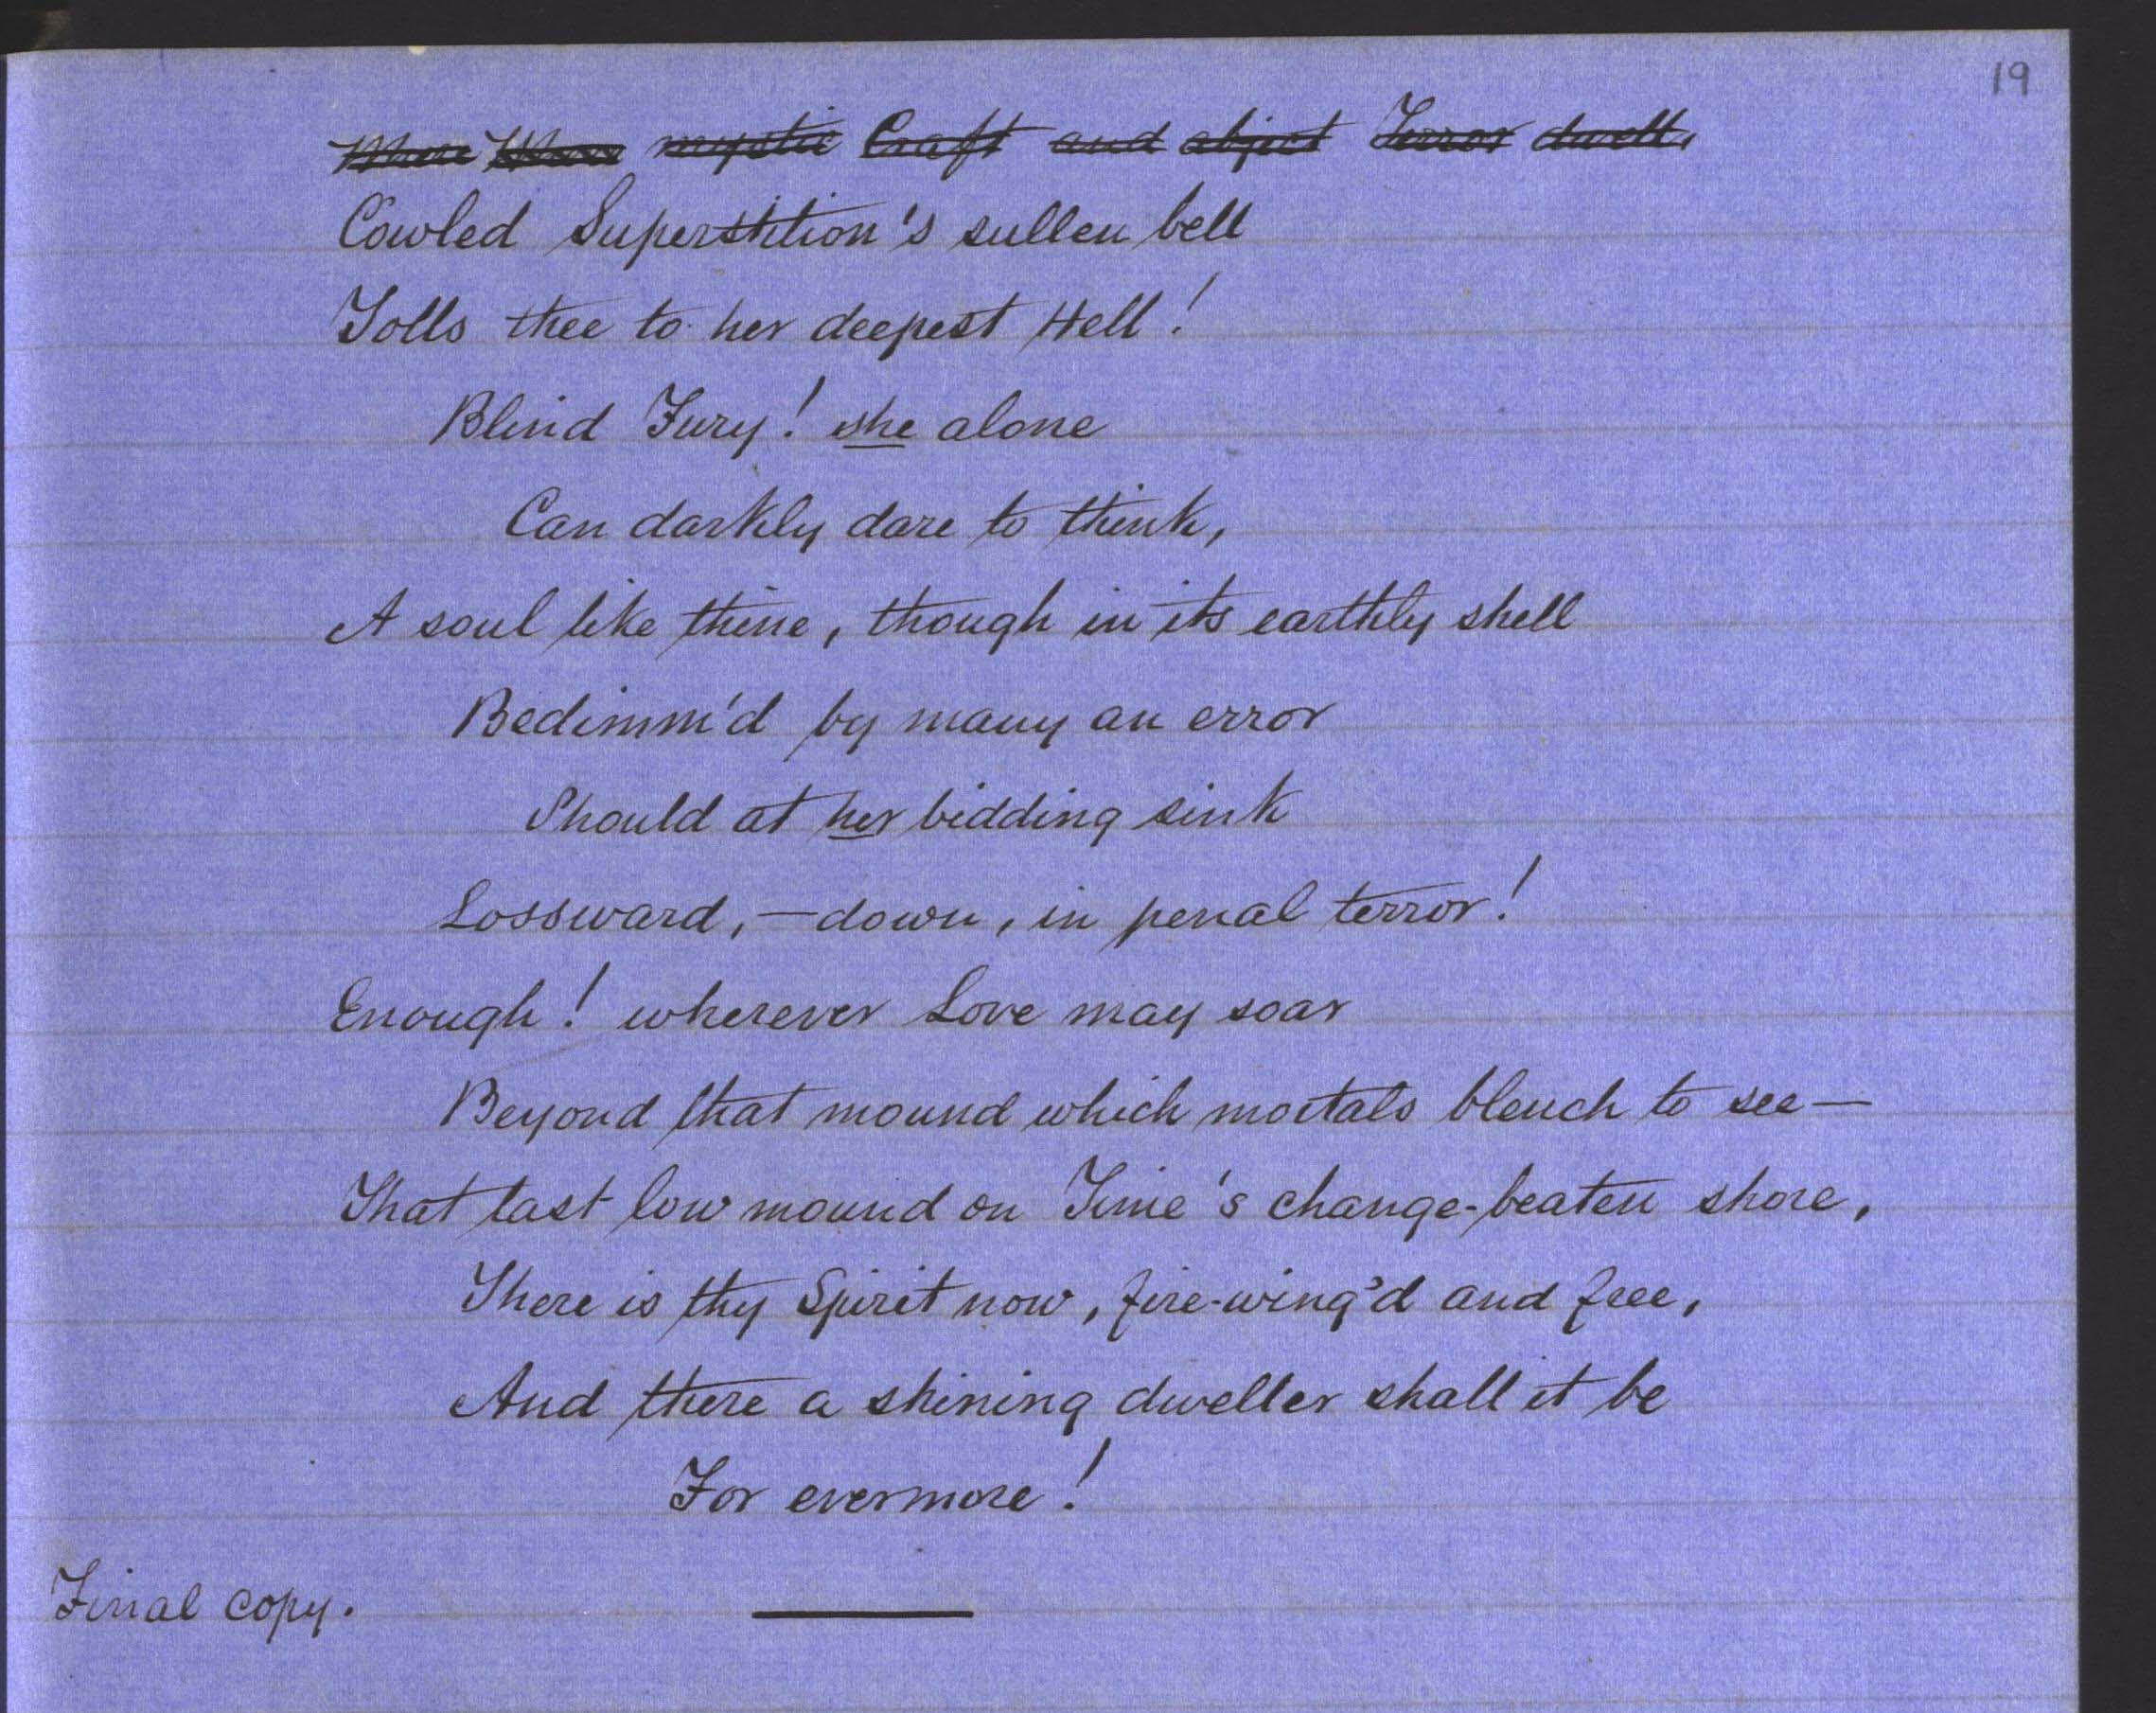 19
Where Where mystic Craft and abject Terror dwell,
Cowled Superstition's sullen bell
Tolls thee to her deepest Hell!
Blind Fury! she alone
Can darkly dare to think,
A soul like thine, though in its earthly shell
Bedimm'd by many an error
Should at her bidding sink
Lossward,—down, in penal terror!
Enough! wherever Love may soar
Beyond that mound which mortals blench to see—
That last low mound on Time's change-beaten shore,
There is thy Spirit now, fire-wing'd and free,
And there a shining dweller shall it be
For evermore!
Final copy.